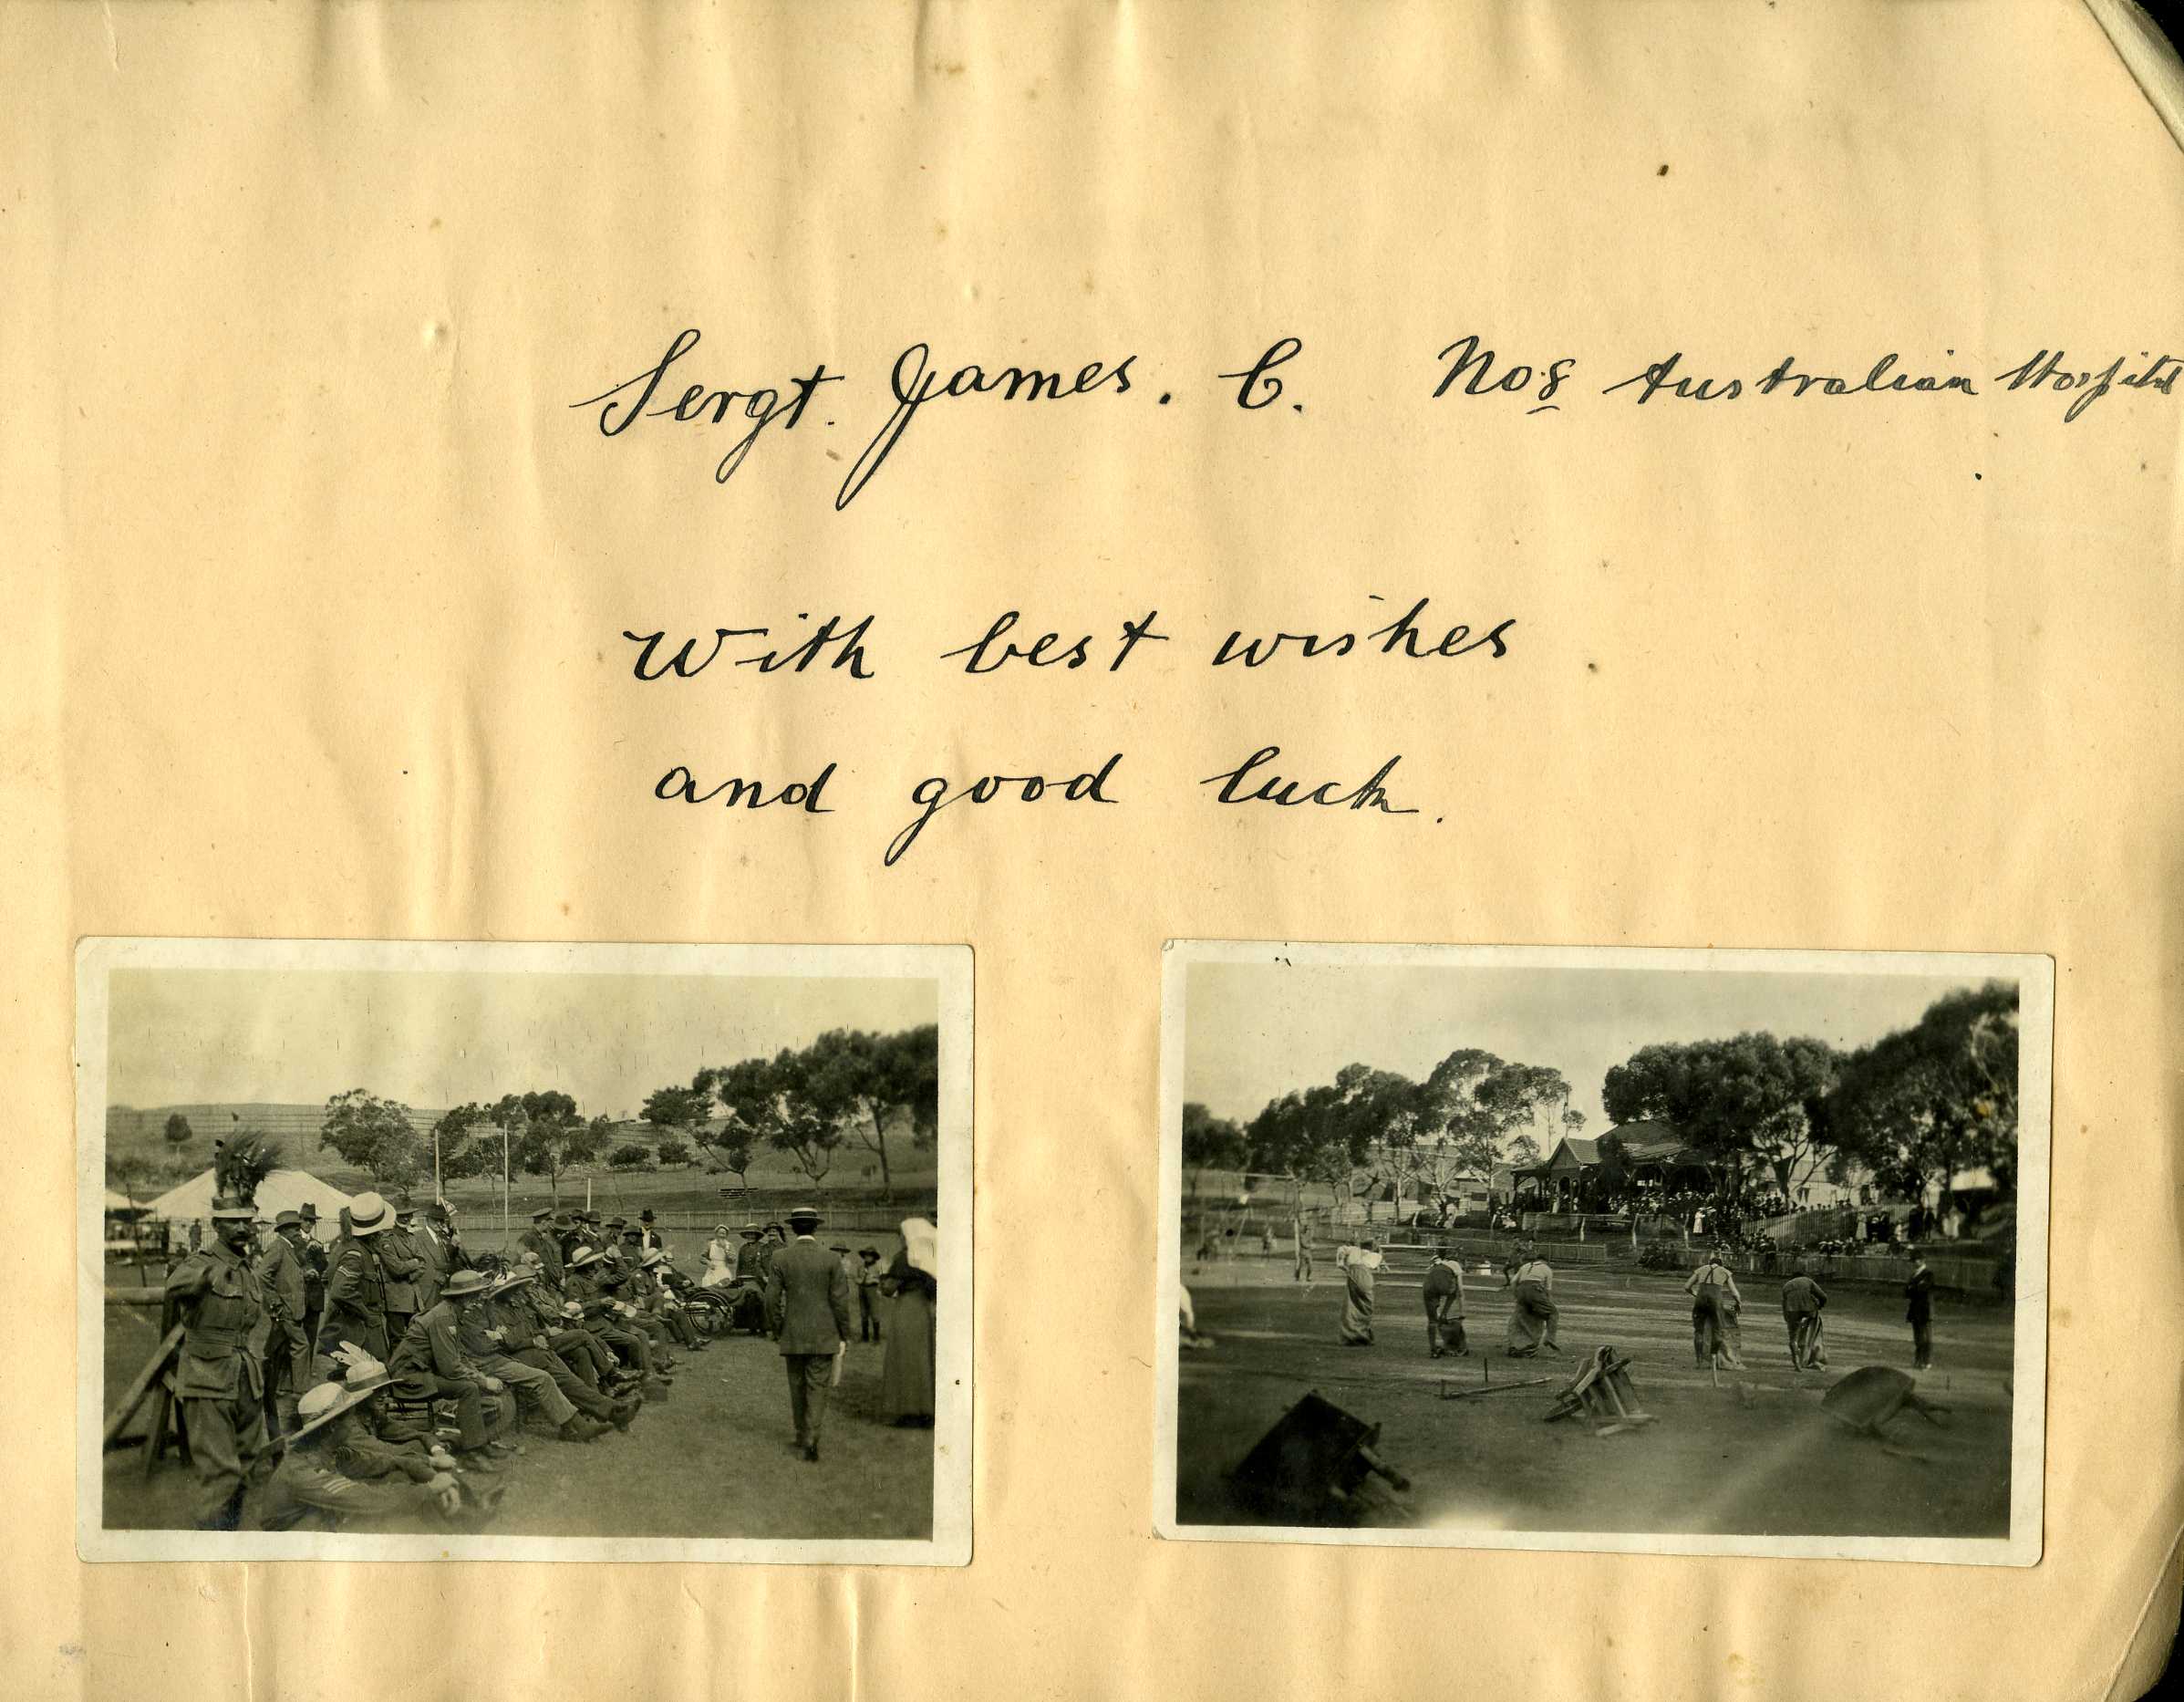 Sergt. James. C. No 8 Australian Hospital
With best wishes
and good luck.